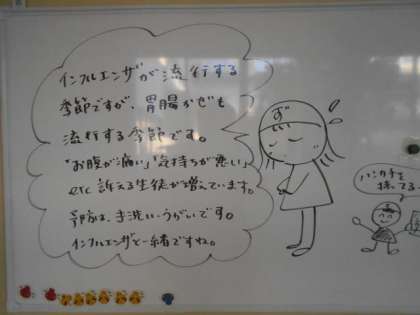 インフルエンザが流行する
季節ですが、胃腸かぜも
流行する季節です。
"お腹が痛い""気持ちが悪い"
etc 訴える生徒が増えています。
予防は、手洗いうがいです。
インフルエンザと一緒ですね。
ハンカチを
持ってる